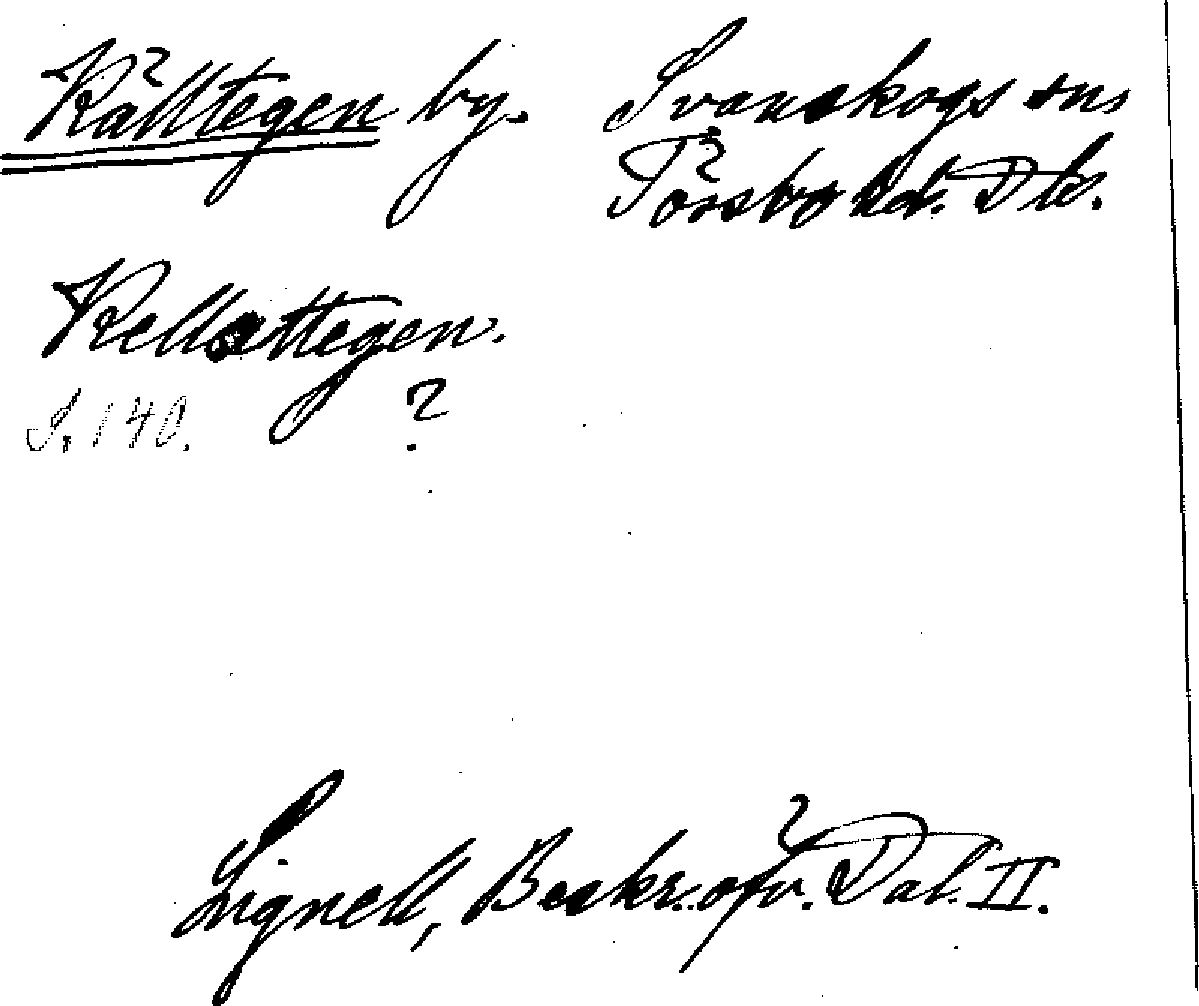 Källtegen by. Svanskogs sn,
Tössbo hd. Dls.
Kellsættegen.
S. 140. ?
Lignell, Beskr. öfv. Dal. II.